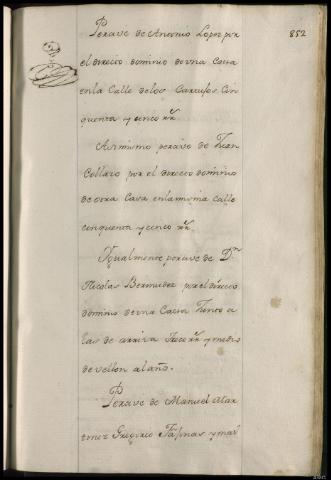 852
Perave de Antonio Lopez por
el directo dominio de vna Casa
en la Calle de los Cin
quenta y cinco rr.
Asimismo perave de Juan
Collazo por el directo dominio
de otra Casa en la misma Calle
cinquenta y cinco rr.
Ygualmente perave de Dn.
Nicolas Bermudez por el directo
dominio de vna Casa Junto a
las de arriva trece rr. y medio
de vellon al año.
P
Perave de Manuel Mar
tinez Gregorio y mas